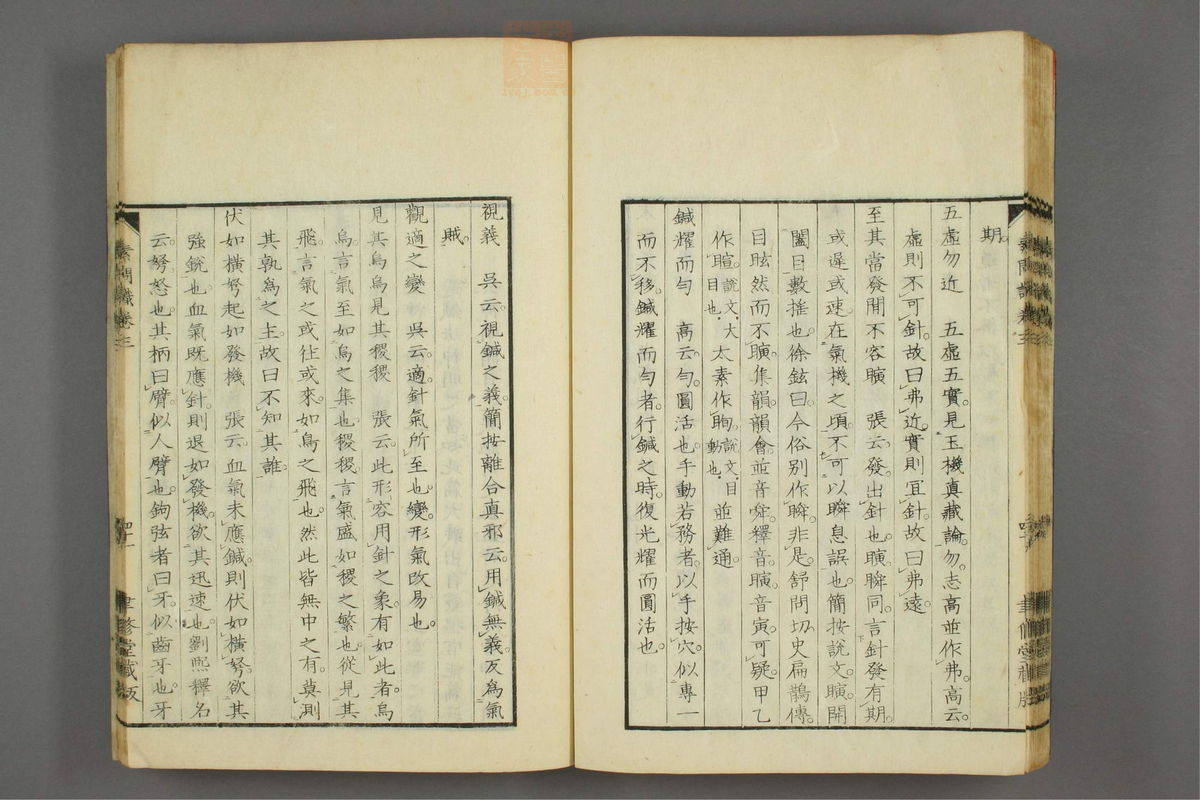 期。
五虛勿近　五虛五實。見玉機真藏論。勿志高並作弗。高云。
虛則不可針。故曰弗近。實則宜針。故曰弗遠。
至其當發間不容瞚　張云。發。出針也。瞚瞬同。言針發有期。
或遲或速。在氣機之頃。不可以瞬息誤也。簡按說文。瞚。開
闔目數搖也。徐鉉曰。今俗別作瞬。非是。舒問切。史扁鵲傳。
目眩然而不瞚。集韻。韻會。並音舜。釋音。瞚音寅。可疑。甲乙
作暄。說文。大目也。太素作眴。說文。目動也。並難通。
鍼耀而勻　高云。勻。圓活也。手動若務者。以手按穴。似專一
而不移。鍼耀而勻者。行鍼之時。復光耀而圓活也。
視義　吳云。視鍼之義。簡按離合真邪云。用鍼無義。反為氣
賊。
觀適之變　吳云。適。針氣所至也。變。形氣改易也。
見其烏烏見其稷稷　張云。此形容用針之象。有如此者。烏
烏。言氣至如烏之集也。稷稷。言氣盛如稷之繁也。從見其
飛。言氣之或往或來。如鳥之飛也。然此皆無中之有。莫測
其孰為之主。故曰不知其誰。
伏如橫弩起如發機　張云。血氣未應鍼。則伏如橫弩。欲其
強銳也。血氣既應針。則退如發機。欲其迅速也。劉熙釋名
云。弩。怒也。其柄曰臂。似人臂也。鉤弦者曰牙。似齒牙也。牙
素問識卷三
四十一
聿修堂藏版